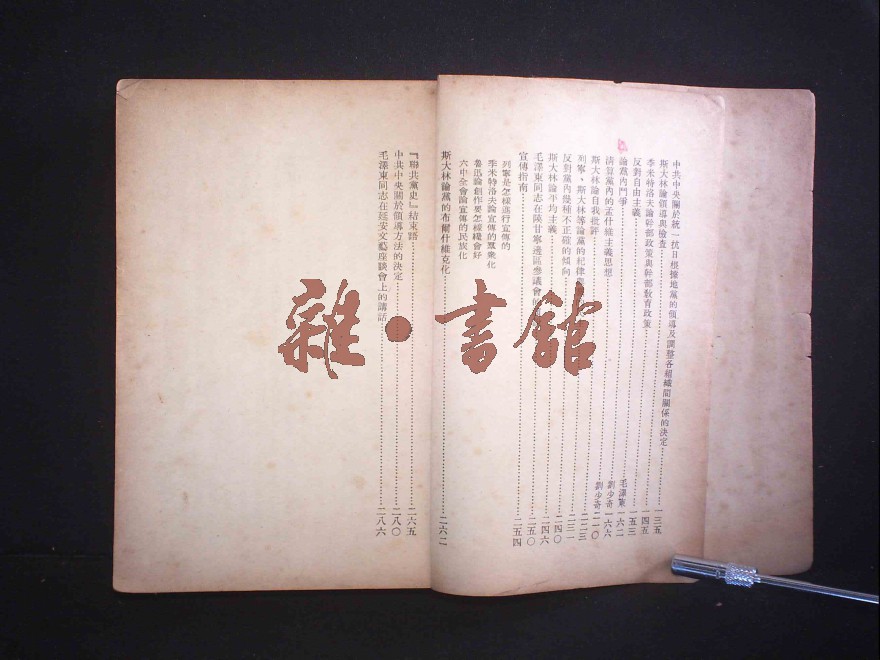 中共中央關於統一抗日根據地黨的領導及調整各組織間關係的決定……一三五
斯大林論領導與檢查……一四五
季米特洛夫論幹部政策與幹部教育政策……一五三
反對自由主義……毛澤東 一六二
論黨內鬥爭……劉少奇 一六六
清算黨內的孟什維主義思想……劉少奇 二一〇
斯大林論自我批評……二二三
列寧、斯大林等論黨的紀律……二三一
反對黨內幾種不正確的傾向……二四〇
斯大林論平均主義……二四六
毛澤東同志在陝甘寧邊區參議會的……二五〇
宣傳指南……二五四
列寧是怎樣進行宣傳的
季米特洛夫論宣傳的羣衆化
魯迅論創作要怎樣纔會好
六中全會論宣傳的民族化
斯大林論黨的布爾什維克化……二六二
『聯共黨史』結束語……二六五
中共中央關於領導方法的決定……二八〇
毛澤東同志在延安文藝座談會上的講話……二八六
雜·書館